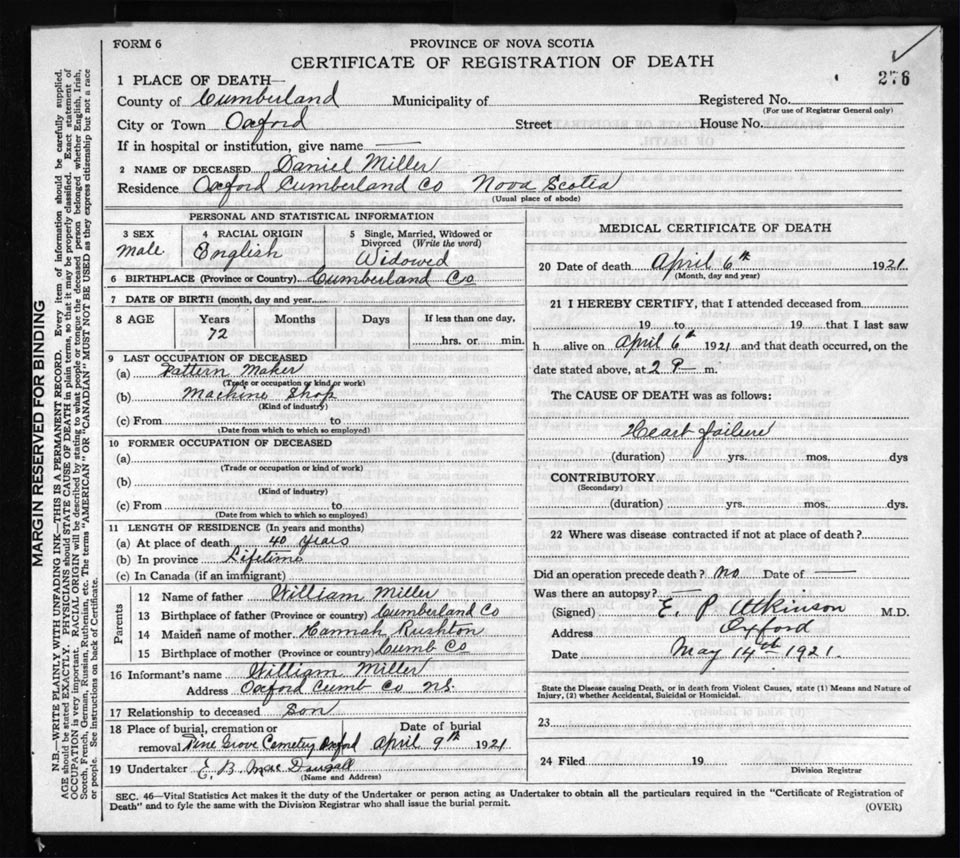 FORM 6
PROVINCE OF NOVA SCOTIA
CERTIFICATE OF REGISTRATION OF DEATH
276
1 PLACE OF DEATH—
County of Cumberland Municipality of Registered No.
(For use of Registrar General only)
City or Town Oxford Street House No.
If in hospital or institution, give name —
2 NAME OF DECEASED Daniel Miller
Residence Oxford Cumberland Co Nova Scotia
(Usual place of abode)
PERSONAL AND STATISTICAL INFORMATION
3 SEX
Male
4 RACIAL ORIGIN
English
5 Single, Married, Widowed or
Divorced (Write the word)
Widowed
6 BIRTHPLACE (Province or Country) Cumberland Co
7 DATE OF BIRTH (month, day and year)
8 AGE Years Months Days If less than one day,
72 hrs. or min.
9 LAST OCCUPATION OF DECEASED
(a) Pattern Maker
(Trade or occupation or kind or work)
(b) Machine Shop
(Kind of industry)
(c) From to
(Date from which to which so employed)
10 FORMER OCCUPATION OF DECEASED
(a)
(Trade or occupation or kind of work)
(b)
(Kind of industry)
(c) From to
(Date from which to which so employed)
11 LENGTH OF RESIDENCE (In years and months)
(a) At place of death 40 years
(b) In province Lifetime
(c) In Canada (if an immigrant)
Parents
12 Name of father William Miller
13 Birthplace of father (Province or country) Cumberland Co
14 Maiden name of mother Hannah Rushton
15 Birthplace of mother (Province or country) Cumb Co
16 Informant's name William Miller
Address Oxford Cumb Co N.S.
17 Relationship to deceased Son
18 Place of burial, cremation or Date of burial
removal Pine Grove Cemetery Oxford April 9th 1921
19 Undertaker E. B. Mac Dougall
(Name and Address)
MEDICAL CERTIFICATE OF DEATH
20 Date of death April 6th 1921
(Month, day and year)
21 I HEREBY CERTIFY, that I attended deceased from
19 to 19 that I last saw
h alive on April 6th 1921 and that death occurred, on the
date stated above, at 2 P — m.
The CAUSE OF DEATH was as follows:
Heart failure
(duration) yrs. mos. dys
CONTRIBUTORY
(Secondary)
(duration) yrs. mos. dys.
22 Where was disease contracted if not at place of death?
Did an operation precede death? no Date of —
Was there an autopsy? —
(Signed) E. P. Atkinson M.D.
Address Oxford
Date May 14th 1921.
State the Disease causing Death, or in death from Violent Causes, state (1) Means and Nature of
Injury, (2) whether Accidental, Suicidal or Homicidal.
23
24 Filed 19
Division Registrar
SEC. 46—Vital Statistics Act makes it the duty of the Undertaker or person acting as Undertaker to obtain all the particulars required in the "Certificate of Registration of
Death" and to fyle the same with the Division Registrar who shall issue the burial permit.
(OVER)
MARGIN RESERVED FOR BINDING
N.B.—WRITE PLAINLY WITH UNFADING INK—THIS IS A PERMANENT RECORD. Every item of information should be carefully supplied.
AGE should be stated EXACTLY. PHYSICIANS should STATE CAUSE OF DEATH in plain terms, so that it may be properly classified. Exact statement of
OCCUPATION is very important. RACIAL ORIGIN will be described by stating to what people or tongue the deceased person belonged whether English, Irish,
Scotch, French, German, Russian, Ruthenian, etc. The terms "AMERICAN" OR "CANADIAN" MUST NOT BE USED as they express citizenship but not a race
or people. See instructions on back of Certificate.